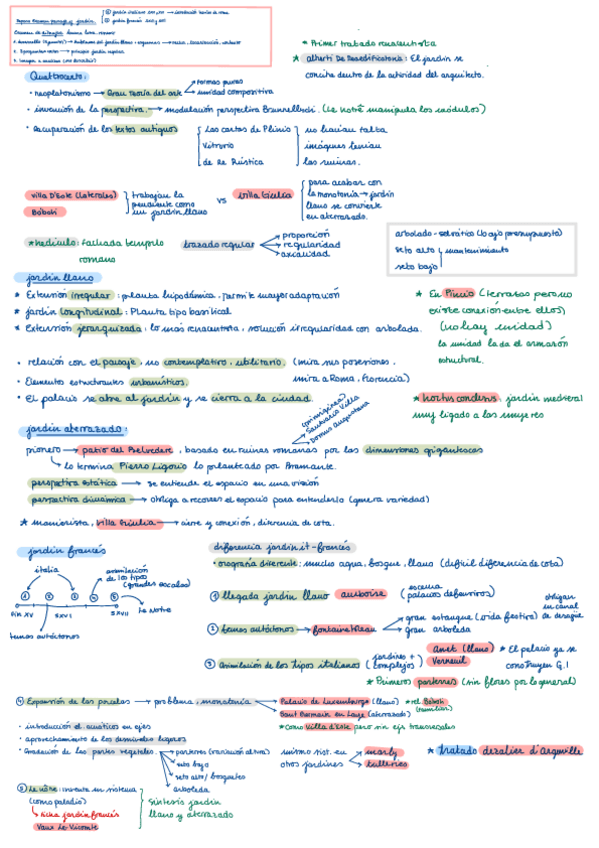 ① jardín italiano
② jardín francés XVII y XVIII
Quattrocento:
• neoplatonismo → Gran teoría del arte
formas puras
unidad compositiva
• invención de la perspectiva → modulación perspectiva Brunelleschi. (Le Notre manipula los módulos)
• recuperación de los textos antiguos
Las cartas de Plinio
Vitruvio
de Re Rústica
no hacían falta
imágenes tenían
las ruinas.
* Primer tratado renacentista
* Alberti De Reaedificatoria: El jardín se
concibe dentro de la actividad del arquitecto.
Villa D'Este (laterales)
Boboli
trabajan la
pendiente como
un jardín llano
vs
Villa Giulia
para acabar con
la monotonía → jardín
llano se convierte
en aterrazado.
fachada templo
romano
trazado regular
proporción
regularidad
axialidad
arbolado - selvático (bajo presupuesto)
seto alto
seto bajo
mantenimiento
jardín llano
* Extensión irregular: planta hipodámica, permite mayor adaptación
* jardín longitudinal: Planta tipo basilical
* Extensión jerarquizada: lo más renacentista, solución irregularidad con arbolada.
* En Pincio (terrazas pero no
existe conexión entre ellos)
(no hay unidad)
la unidad la da el armazón
estructural.
• relación con el paisaje, no contemplativo, utilitario (mira sus posesiones,
mira a Roma, Florencia)
• Elementos estructurantes urbanísticos.
• El palacio se abre al jardín y se cierra a la ciudad.
* hortus conclusus: jardín medieval
muy ligado a las mujeres
jardín aterrazado:
(primigenia)
Santuario Villa
Domus augustana
pionero → patio del Belvedere, basado en ruinas romanas por las dimensiones gigantescas
lo termina Pierro Ligorio lo planteado por Bramante.
perspectiva estática → se entiende el espacio en una visión
perspectiva dinámica → obliga a recorrer el espacio para entenderlo (genera variedad)
* manierista, Villa Giulia → cierre y conexión, diferencia de cota.
jardín francés
italia
asimilación
de los tipos
(grandes escalas)
① ② ③ ④ ⑤
fin XV
S XVI
S XVII
Le Notre
temas autóctonos
diferencia jardín it - francés
• orografía diferente: mucho agua, bosque, llano (difícil diferencia de cota)
① llegada jardín llano Amboise
(escena
palacios defensivos)
② temas autóctonos → fontainebleau
gran estanque (vida festiva)
gran arboleda
obligan
un canal
de desagüe
③ Asimilación de los tipos italianos
(jardines +
complejos)
Anet (llano)
Verneuil
* El palacio ya se
construye G.I
* Primeros parterres (sin flores por lo general)
④ Expansión de las parcelas → problema, monotonía
Palacio de Luxemburgo (llano)
Saint Germain en Laye (aterrazado)
* rel. Boboli
(familiar)
* como Villa d'Este pero sin eje transversales
• introducción el acuático en ejes
• aprovechamiento de los desniveles ligeros
• Graduación de las partes vegetales.
parterres (variación altura)
seto bajo
seto alto / bosquetes
arboleda
mismo sist. en
otros jardines
marly
tullerias
* tratado dezalier d'Argenville
⑤ Le nôtre: inventa un sistema
(como paladio)
ficha jardín francés
Vaux Le Vicomte
Síntesis jardín
llano y aterrazado